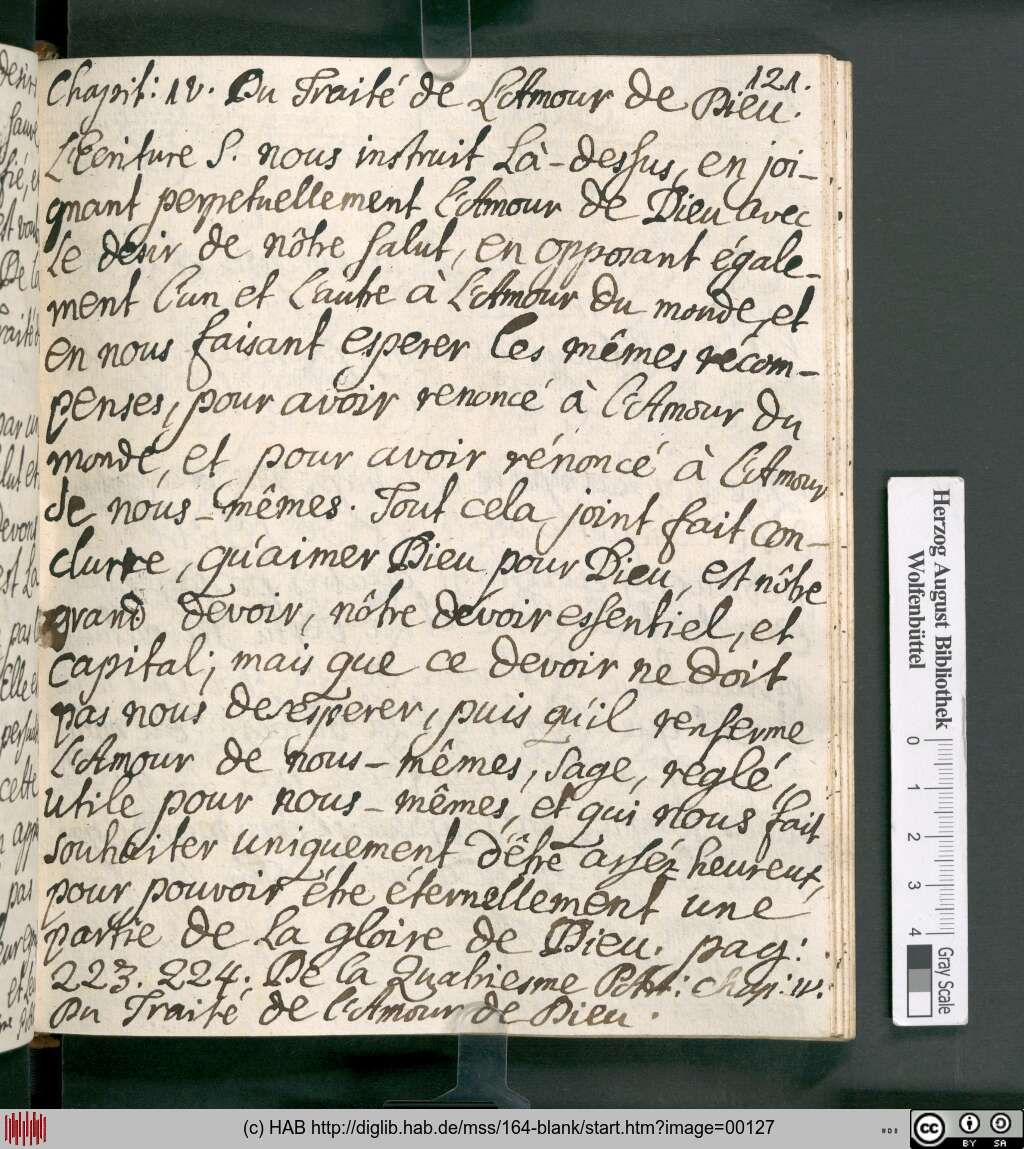 121.
Chapit: IV. Du Traité de L'Amour de Dieu.
L'Ecriture S. nous instruit Là-dessus, en joi-
gnant perpetuellement l'Amour de Dieu avec
Le désir de nôtre salut, en opposant égale-
ment l'un et l'autre à L'Amour du monde, et
en nous faisant esperer les mêmes récom-
penses, pour avoir renoncé à l'Amour du
monde, et pour avoir rénoncé à l'Amour
de nous-mêmes. Tout cela joint fait con-
clurre, qu'aimer Dieu pour Dieu, est nôtre
grand devoir, nôtre devoir essentiel, et
capital, mais que ce devoir ne doit
pas nous desesperer, puis qu'il renferme
L'Amour de nous-mêmes, sage, reglé,
utile pour nous-mêmes, et qui nous fait
souhaiter uniquement d'être assés heureux,
pour pouvoir étre éternellement une
partie de La gloire de Dieu. pag:
223. 224. De la Quatriesme Part: Chap: IV.
Du Traité de l'Amour de Dieu.
Herzog August Bibliothek
Wolfenbüttel
0 1 2 3 4
Gray Scale
(c) HAB http://diglib.hab.de/mss/164-blank/start.htm?image=00127
cc BY SA